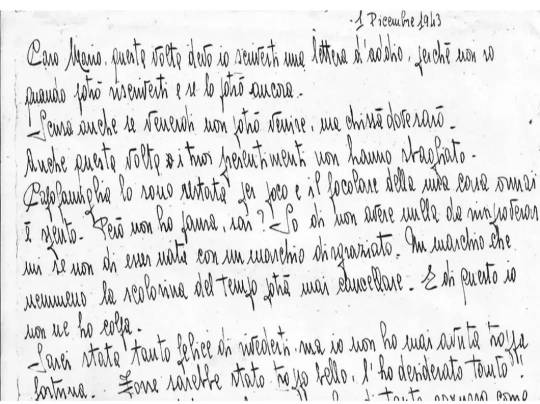 1 Dicembre 1943
Caro Mario, questa volta devo io scriverti una lettera d'addio, perché non so
quando potrò riscriverti e se lo potrò ancora.
Scusa anche se Venerdì non potrò venire, ma chissà dove sarò.
Anche questa volta i tuoi presentimenti non hanno sbagliato.
Capofamiglia lo sono restata per poco e il focolare della mia casa ormai
è spento. Però non ho paura, sai? So di non avere nulla da rimproverar
mi se non di esser nata con un marchio disgraziato. Un marchio che
nemmeno la scolorina del tempo potrà mai cancellare. E di questo io
non ne ho colpa.
Sarei stata tanto felice di rivederti, ma io non ho mai avuta troppa
fortuna. Forse sarebbe stato troppo bello, l'ho desiderato tanto!!
di tanto come